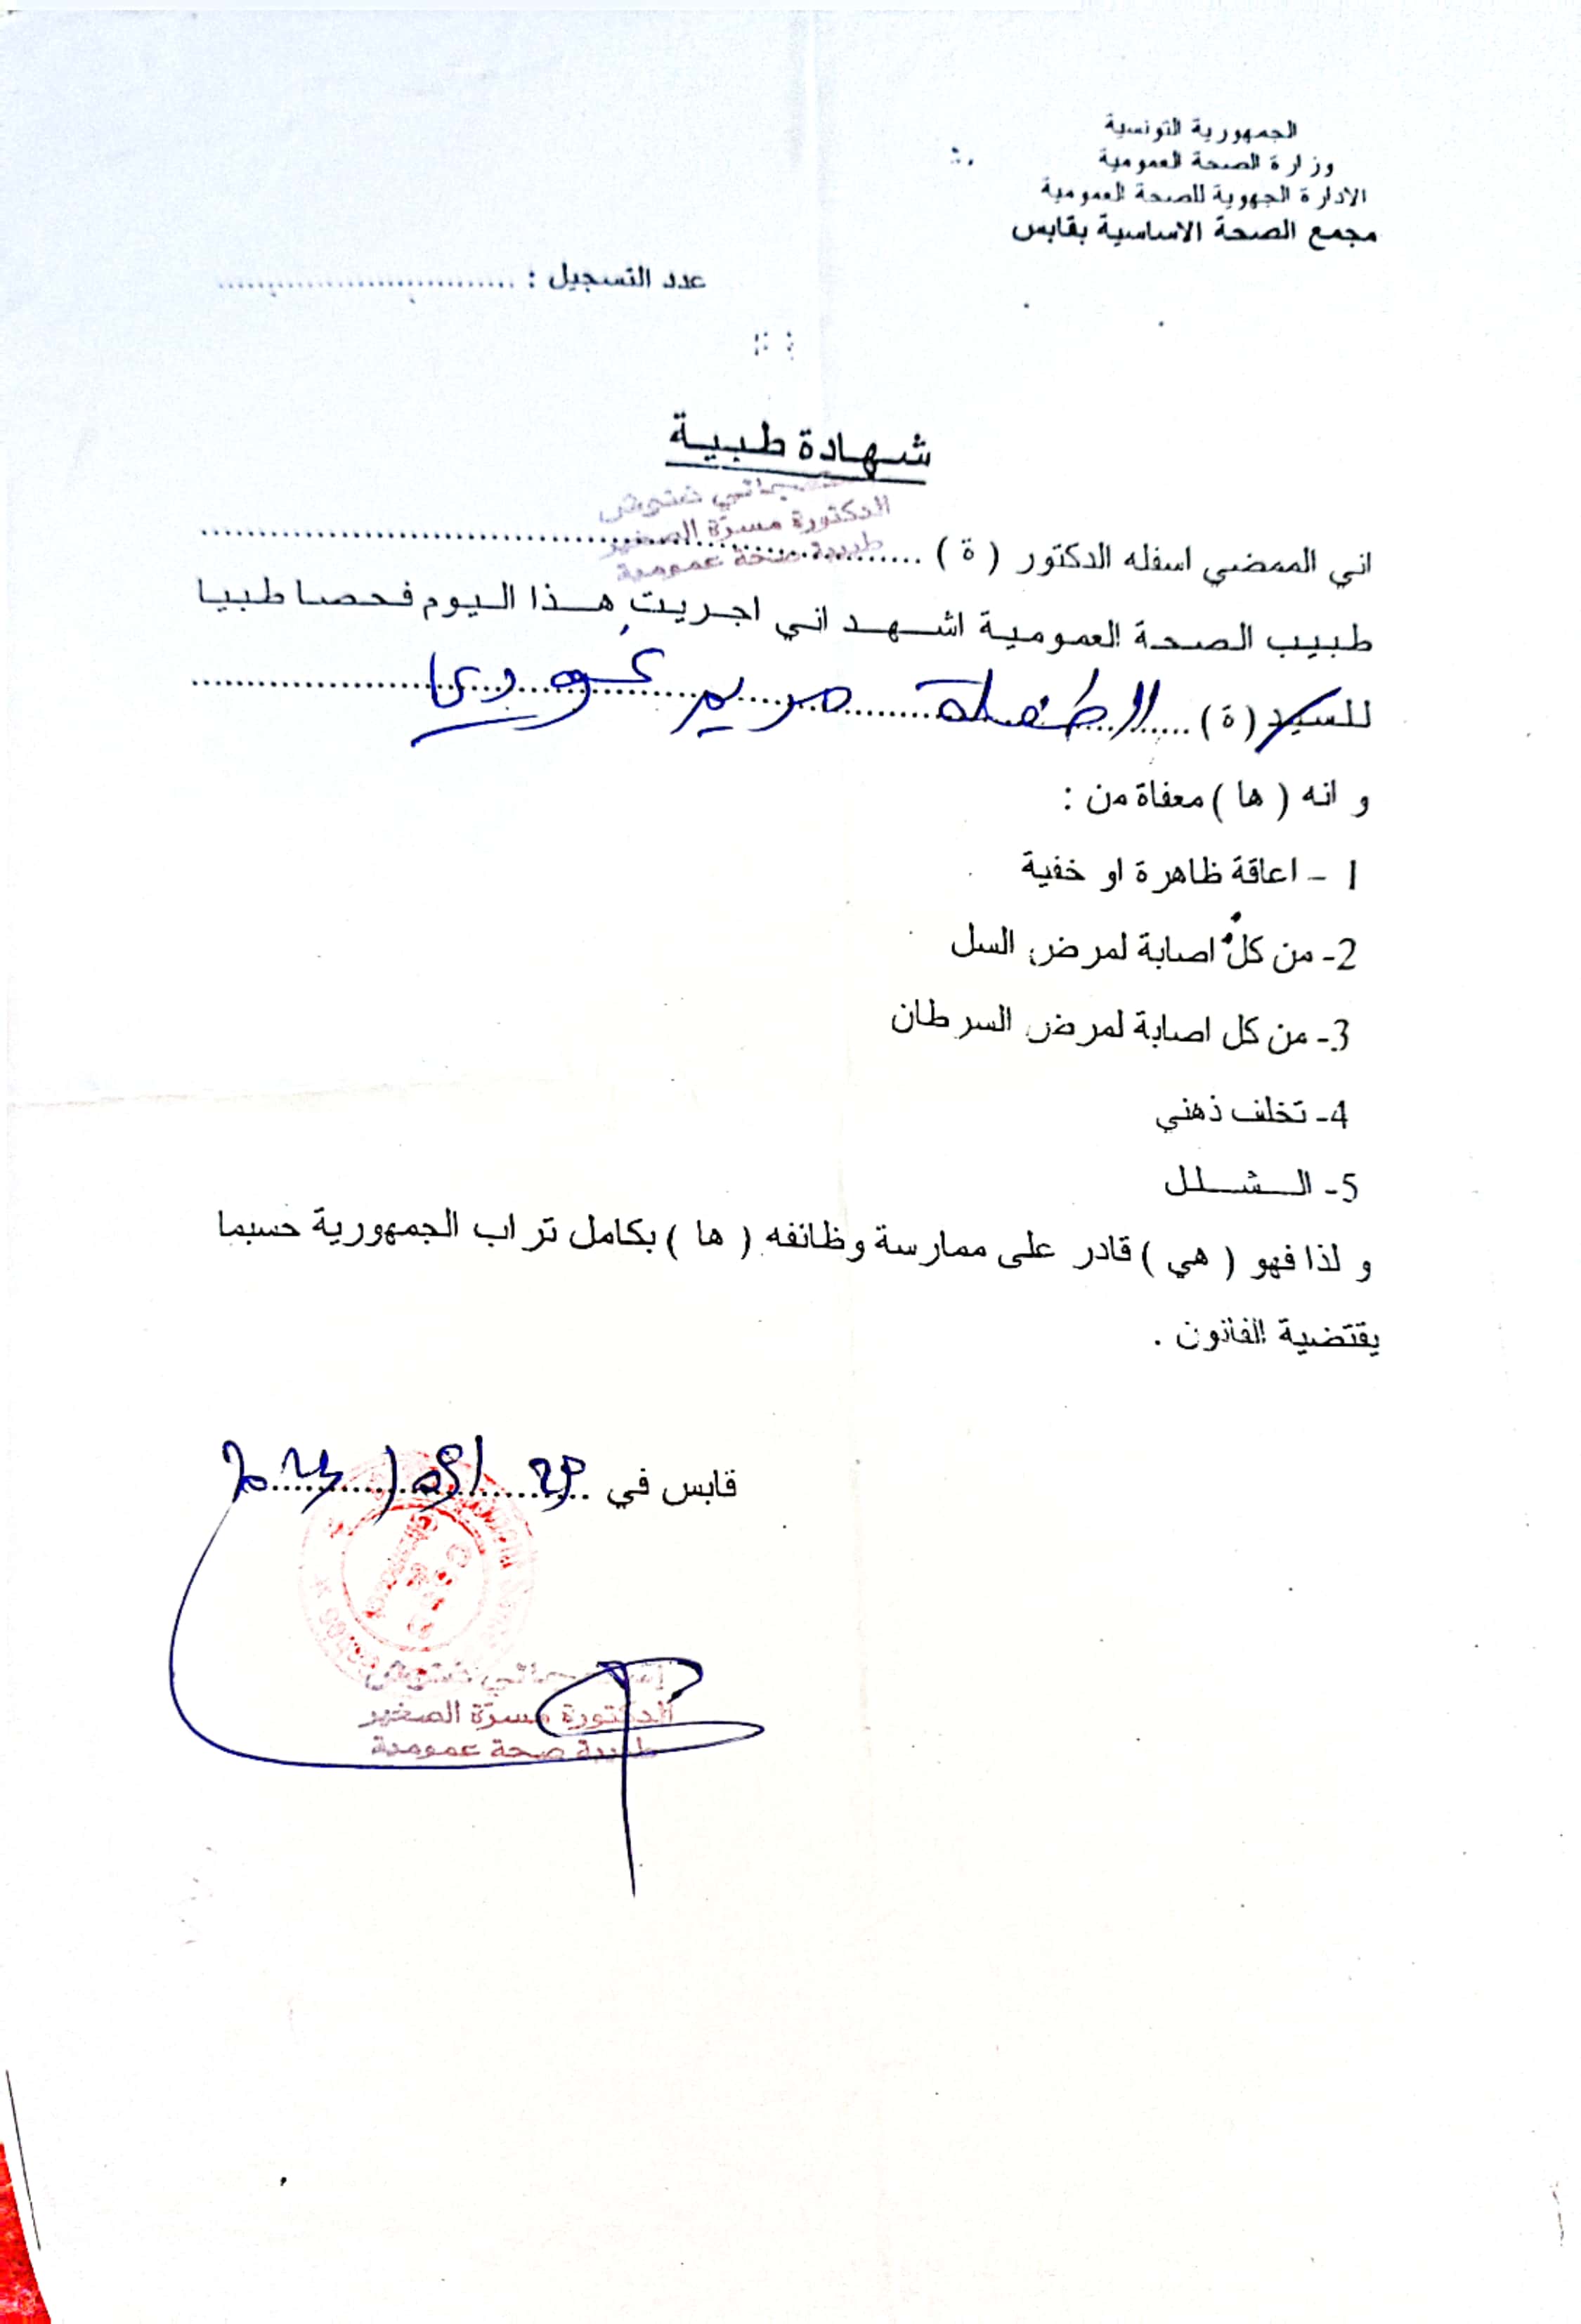 الجمهورية التونسية
وزارة الصحة العمومية
الادارة الجهوية للصحة العمومية
مجمع الصحة الاساسية بقابس
عدد التسجيل : ..............................
شهادة طبية
الدكتورة مسرّة الصغير
طبيبة صحة عمومية
اني الممضي اسفله الدكتور ( ة ) ..............................
طبيب الصحة العمومية اشهد اني اجريت هذا اليوم فحصا طبيا
للسيد ( ة ) ..... الطفلة مريم
و انه ( ها ) معفاة من :
1 - اعاقة ظاهرة او خفية
2- من كل اصابة لمرض السل
3- من كل اصابة لمرض السرطان
4- تخلف ذهني
5- الشلل
و لذا فهو ( هي ) قادر على ممارسة وظائفه ( ها ) بكامل تراب الجمهورية حسبما
يقتضية القانون .
قابس في
الدكتورة مسرّة الصغير
طبيبة صحة عمومية